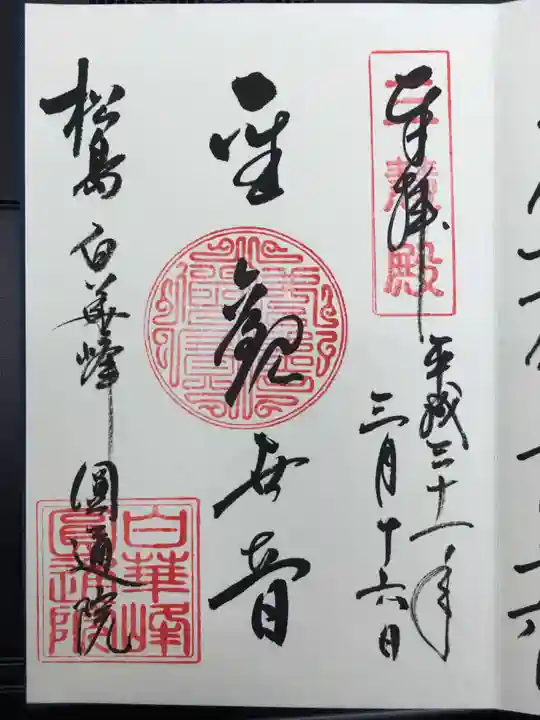 奉拝
三慧殿
平成三十一年
三月十六日
聖觀世音
松島 白華峰 圓通院
白華峰
圓通院